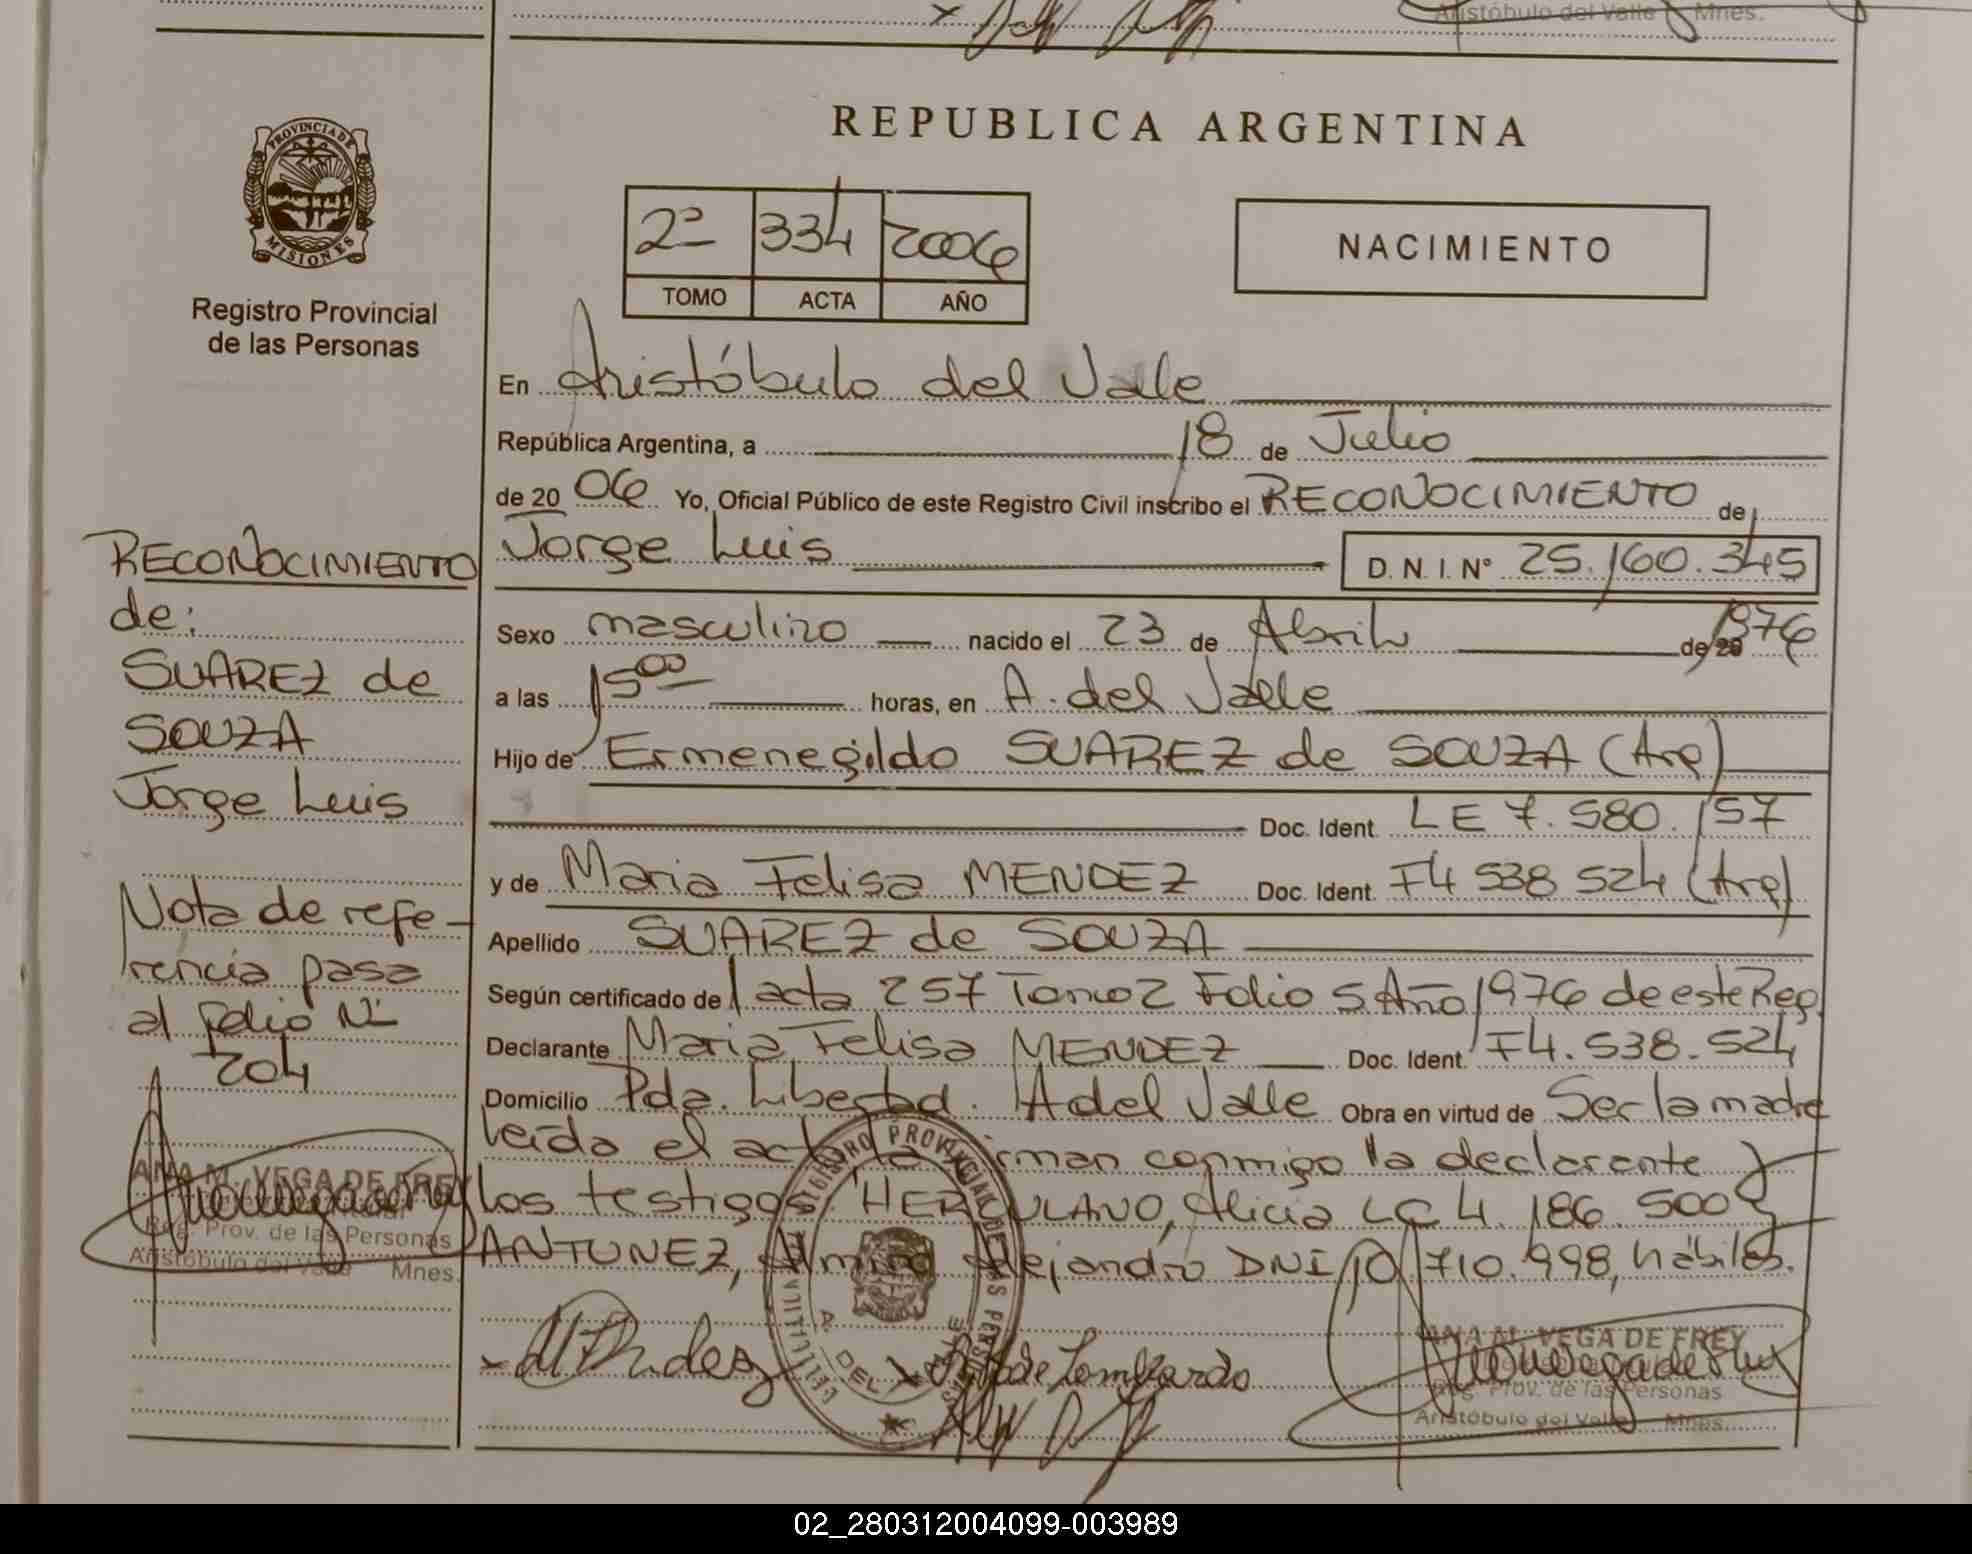 Aristóbulo del Valle Mnes.
REPUBLICA ARGENTINA
PROVINCIA DE
MISIONES
Registro Provincial
de las Personas
2º 334 2006
TOMO ACTA AÑO
NACIMIENTO
En Aristóbulo del Valle
República Argentina, a 18 de Julio
de 20 06 Yo, Oficial Público de este Registro Civil inscribo el RECONOCIMIENTO de
Jorge Luis D.N.I. Nº 25.160.345
Sexo masculino nacido el 23 de Abril de 20 1976
a las 15 00 horas, en A. del Valle
Hijo de Ermenegildo SUAREZ de SOUZA (Arg)
Doc. Ident. LE 7.580.157
y de Maria Felisa MENDEZ Doc. Ident. F4 538 524 (Arg)
Apellido SUAREZ de SOUZA
Según certificado de acta 257 Tomo 2 Folio 5 Año 1976 de este Reg.
Declarante Maria Felisa MENDEZ Doc. Ident. F4.538.524
Domicilio Pda. Libertad. A del Valle Obra en virtud de Ser la madre
leída el acta la firman conmigo la declarante y
los testigos HERCULANO, Alicia LC 4.186.500 y
ANTUNEZ, Almiro Alejandro DNI 10.710.998, hábiles.
RECONOCIMIENTO
de:
SUAREZ de
SOUZA
Jorge Luis
Nota de refe-
rencia pasa
al folio Nº
204
ANA M. VEGA DE FREY
Reg. Prov. de las Personas
Aristóbulo del Valle Mnes.
REGISTRO PROVINCIAL DE LAS PERSONAS
DEL VALLE
de Lombardo
ANA M. VEGA DE FREY
Reg. Prov. de las Personas
Aristóbulo del Valle Mnes.
02_280312004099-003989